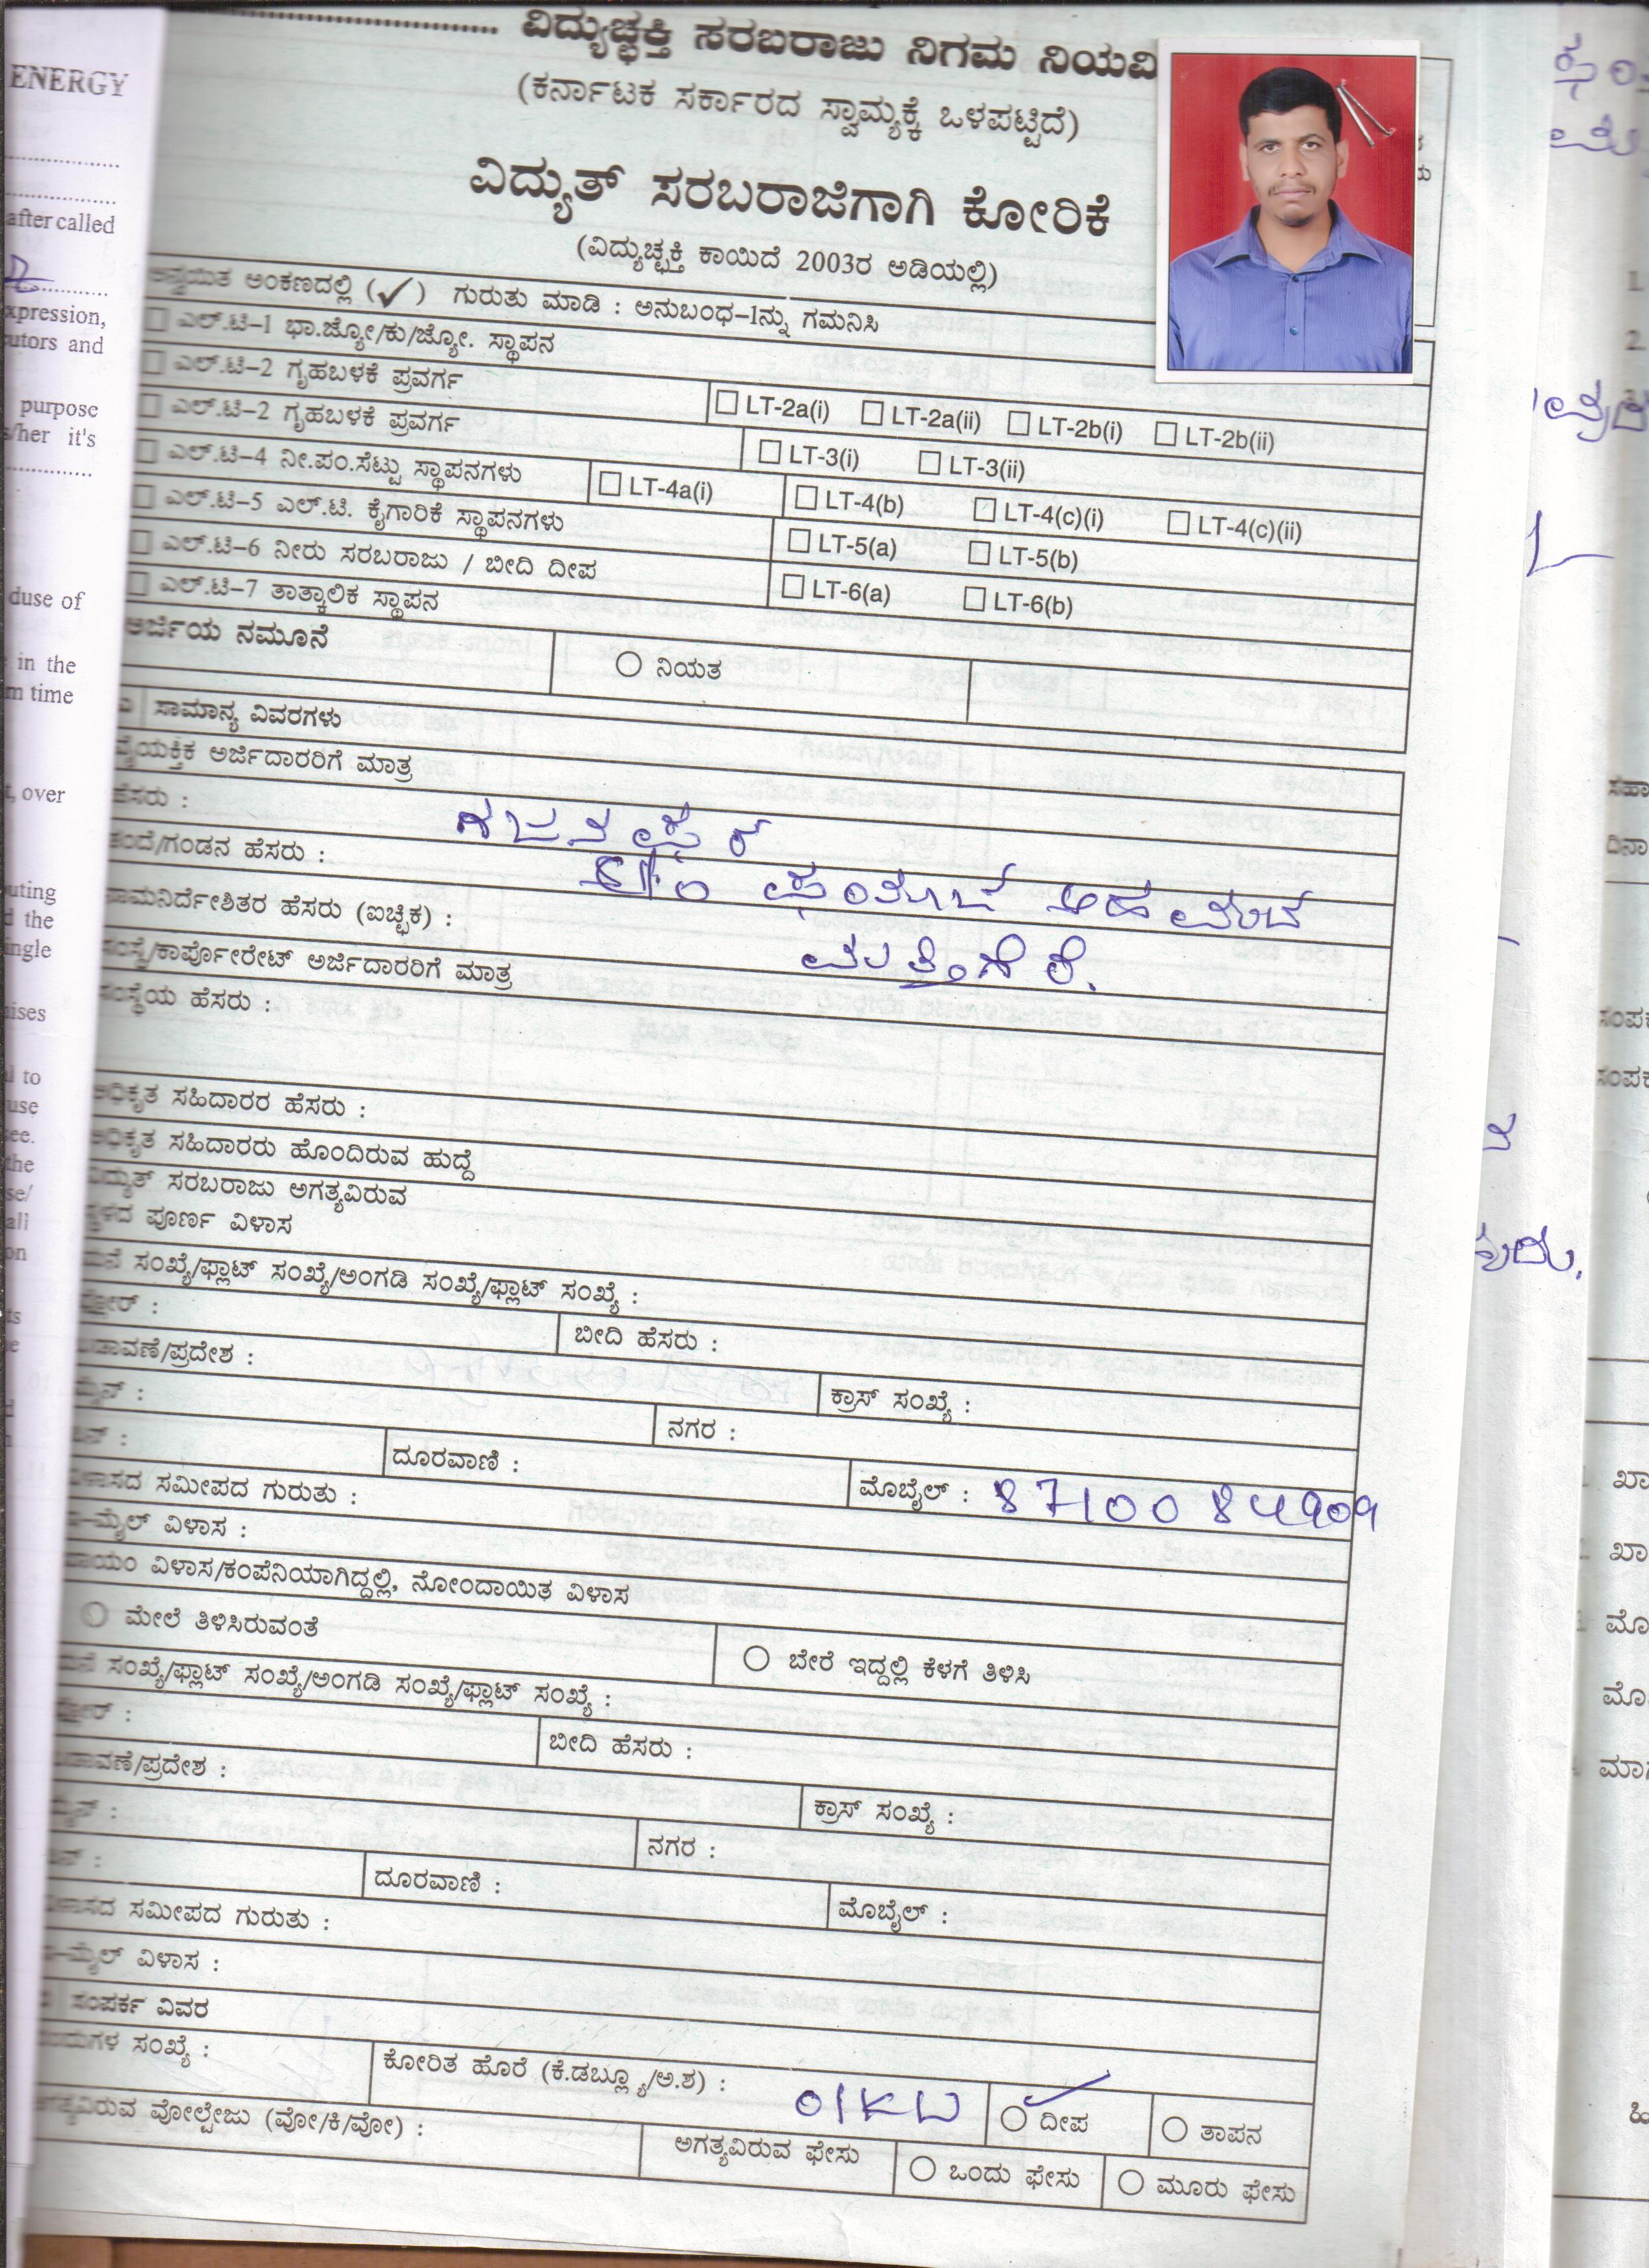 ವಿದ್ಯುಚ್ಛಕ್ತಿ ಸರಬರಾಜು ನಿಗಮ ನಿಯಮಿ
(ಕರ್ನಾಟಕ ಸರ್ಕಾರದ ಸ್ವಾಮ್ಯಕ್ಕೆ ಒಳಪಟ್ಟಿದೆ)
ವಿದ್ಯುತ್ ಸರಬರಾಜಿಗಾಗಿ ಕೋರಿಕೆ
(ವಿದ್ಯುಚ್ಛಕ್ತಿ ಕಾಯಿದೆ 2003ರ ಅಡಿಯಲ್ಲಿ)
ಅನ್ವಯಿತ ಅಂಕಣದಲ್ಲಿ (✓) ಗುರುತು ಮಾಡಿ : ಅನುಬಂಧ-1ನ್ನು ಗಮನಿಸಿ
ಎಲ್.ಟಿ-1 ಭಾ.ಜ್ಯೋ/ಕು/ಜ್ಯೋ. ಸ್ಥಾಪನ
ಎಲ್.ಟಿ-2 ಗೃಹಬಳಕೆ ಪ್ರವರ್ಗ LT-2a(i) LT-2a(ii) LT-2b(i) LT-2b(ii)
ಎಲ್.ಟಿ-2 ಗೃಹಬಳಕೆ ಪ್ರವರ್ಗ LT-3(i) LT-3(ii)
ಎಲ್.ಟಿ-4 ನೀ.ಪಂ.ಸೆಟ್ಟು ಸ್ಥಾಪನಗಳು LT-4a(i) LT-4(b) LT-4(c)(i) LT-4(c)(ii)
ಎಲ್.ಟಿ-5 ಎಲ್.ಟಿ. ಕೈಗಾರಿಕೆ ಸ್ಥಾಪನಗಳು LT-5(a) LT-5(b)
ಎಲ್.ಟಿ-6 ನೀರು ಸರಬರಾಜು / ಬೀದಿ ದೀಪ LT-6(a) LT-6(b)
ಎಲ್.ಟಿ-7 ತಾತ್ಕಾಲಿಕ ಸ್ಥಾಪನ
ಅರ್ಜಿಯ ನಮೂನೆ ನಿಯತ
ಸಾಮಾನ್ಯ ವಿವರಗಳು
ವೈಯಕ್ತಿಕ ಅರ್ಜಿದಾರರಿಗೆ ಮಾತ್ರ
ಹೆಸರು :
ತಂದೆ/ಗಂಡನ ಹೆಸರು :
ನಾಮನಿರ್ದೇಶಿತರ ಹೆಸರು (ಐಚ್ಛಿಕ) :
ಸಂಸ್ಥೆ/ಕಾರ್ಪೋರೇಟ್ ಅರ್ಜಿದಾರರಿಗೆ ಮಾತ್ರ
ಸಂಸ್ಥೆಯ ಹೆಸರು :
ಅಧಿಕೃತ ಸಹಿದಾರರ ಹೆಸರು :
ಅಧಿಕೃತ ಸಹಿದಾರರು ಹೊಂದಿರುವ ಹುದ್ದೆ
ವಿದ್ಯುತ್ ಸರಬರಾಜು ಅಗತ್ಯವಿರುವ
ಸ್ಥಳದ ಪೂರ್ಣ ವಿಳಾಸ
ಮನೆ ಸಂಖ್ಯೆ/ಫ್ಲಾಟ್ ಸಂಖ್ಯೆ/ಅಂಗಡಿ ಸಂಖ್ಯೆ/ಫ್ಲಾಟ್ ಸಂಖ್ಯೆ :
ಫ್ಲೋರ್ : ಬೀದಿ ಹೆಸರು :
ಬಡಾವಣೆ/ಪ್ರದೇಶ : ಕ್ರಾಸ್ ಸಂಖ್ಯೆ :
ಮೈನ್ : ನಗರ :
ಪಿನ್ : ದೂರವಾಣಿ : ಮೊಬೈಲ್ : 8710084909
ವಿಳಾಸದ ಸಮೀಪದ ಗುರುತು :
ಇ-ಮೈಲ್ ವಿಳಾಸ :
ಖಾಯಂ ವಿಳಾಸ/ಕಂಪೆನಿಯಾಗಿದ್ದಲ್ಲಿ, ನೋಂದಾಯಿತ ವಿಳಾಸ
ಮೇಲೆ ತಿಳಿಸಿರುವಂತೆ ಬೇರೆ ಇದ್ದಲ್ಲಿ ಕೆಳಗೆ ತಿಳಿಸಿ
ಮನೆ ಸಂಖ್ಯೆ/ಫ್ಲಾಟ್ ಸಂಖ್ಯೆ/ಅಂಗಡಿ ಸಂಖ್ಯೆ/ಫ್ಲಾಟ್ ಸಂಖ್ಯೆ :
ಫ್ಲೋರ್ : ಬೀದಿ ಹೆಸರು :
ಬಡಾವಣೆ/ಪ್ರದೇಶ : ಕ್ರಾಸ್ ಸಂಖ್ಯೆ :
ಮೈನ್ : ನಗರ :
ಪಿನ್ : ದೂರವಾಣಿ : ಮೊಬೈಲ್ :
ವಿಳಾಸದ ಸಮೀಪದ ಗುರುತು :
ಇ-ಮೈಲ್ ವಿಳಾಸ :
ಸಂಪರ್ಕ ವಿವರ
ಸಂಖ್ಯೆ : ಕೋರಿತ ಹೊರೆ (ಕೆ.ಡಬ್ಲ್ಯೂ/ಅ.ಶ) : 01KW ದೀಪ ತಾಪನ
ಅಗತ್ಯವಿರುವ ವೋಲ್ಟೇಜು (ವೋ/ಕಿ/ವೋ) : ಅಗತ್ಯವಿರುವ ಫೇಸು ಒಂದು ಫೇಸು ಮೂರು ಫೇಸು